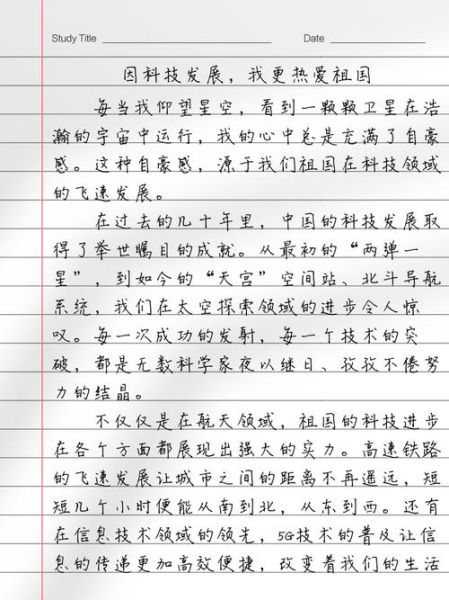 Study Title Date
因科技发展，我更热爱祖国
每当我仰望星空，看到一颗颗卫星在浩
瀚的宇宙中运行，我的心中总是充满了自豪
感。这种自豪感，源于我们祖国在科技领域
的飞速发展。
在过去的几十年里，中国的科技发展取
得了举世瞩目的成就。从最初的“两弹一
星”，到如今的“天宫”空间站、北斗导航
系统，我们在太空探索领域的进步令人惊
叹。每一次成功的发射，每一个技术的突
破，都是无数科学家夜以继日、孜孜不倦努
力的结晶。
不仅仅是在航天领域，祖国的科技进步
在各个方面都展现出强大的实力。高速铁路
的飞速发展让城市之间的距离不再遥远，短
短几个小时便能从南到北，从东到西。还有
在信息技术领域的领先，5G技术的普及让信
息的传递更加高效便捷，改变着我们的生活